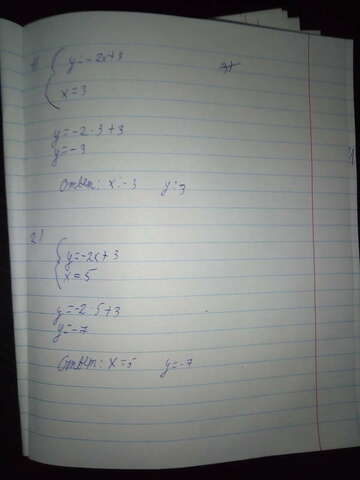 1) { y=-2x+3
x=3
y=-2·3+3
y=-3
Ответ: x=3 y=3
2) { y=-2x+3
x=5
y=-2·5+3
y=-7
Ответ: x=5 y=-7